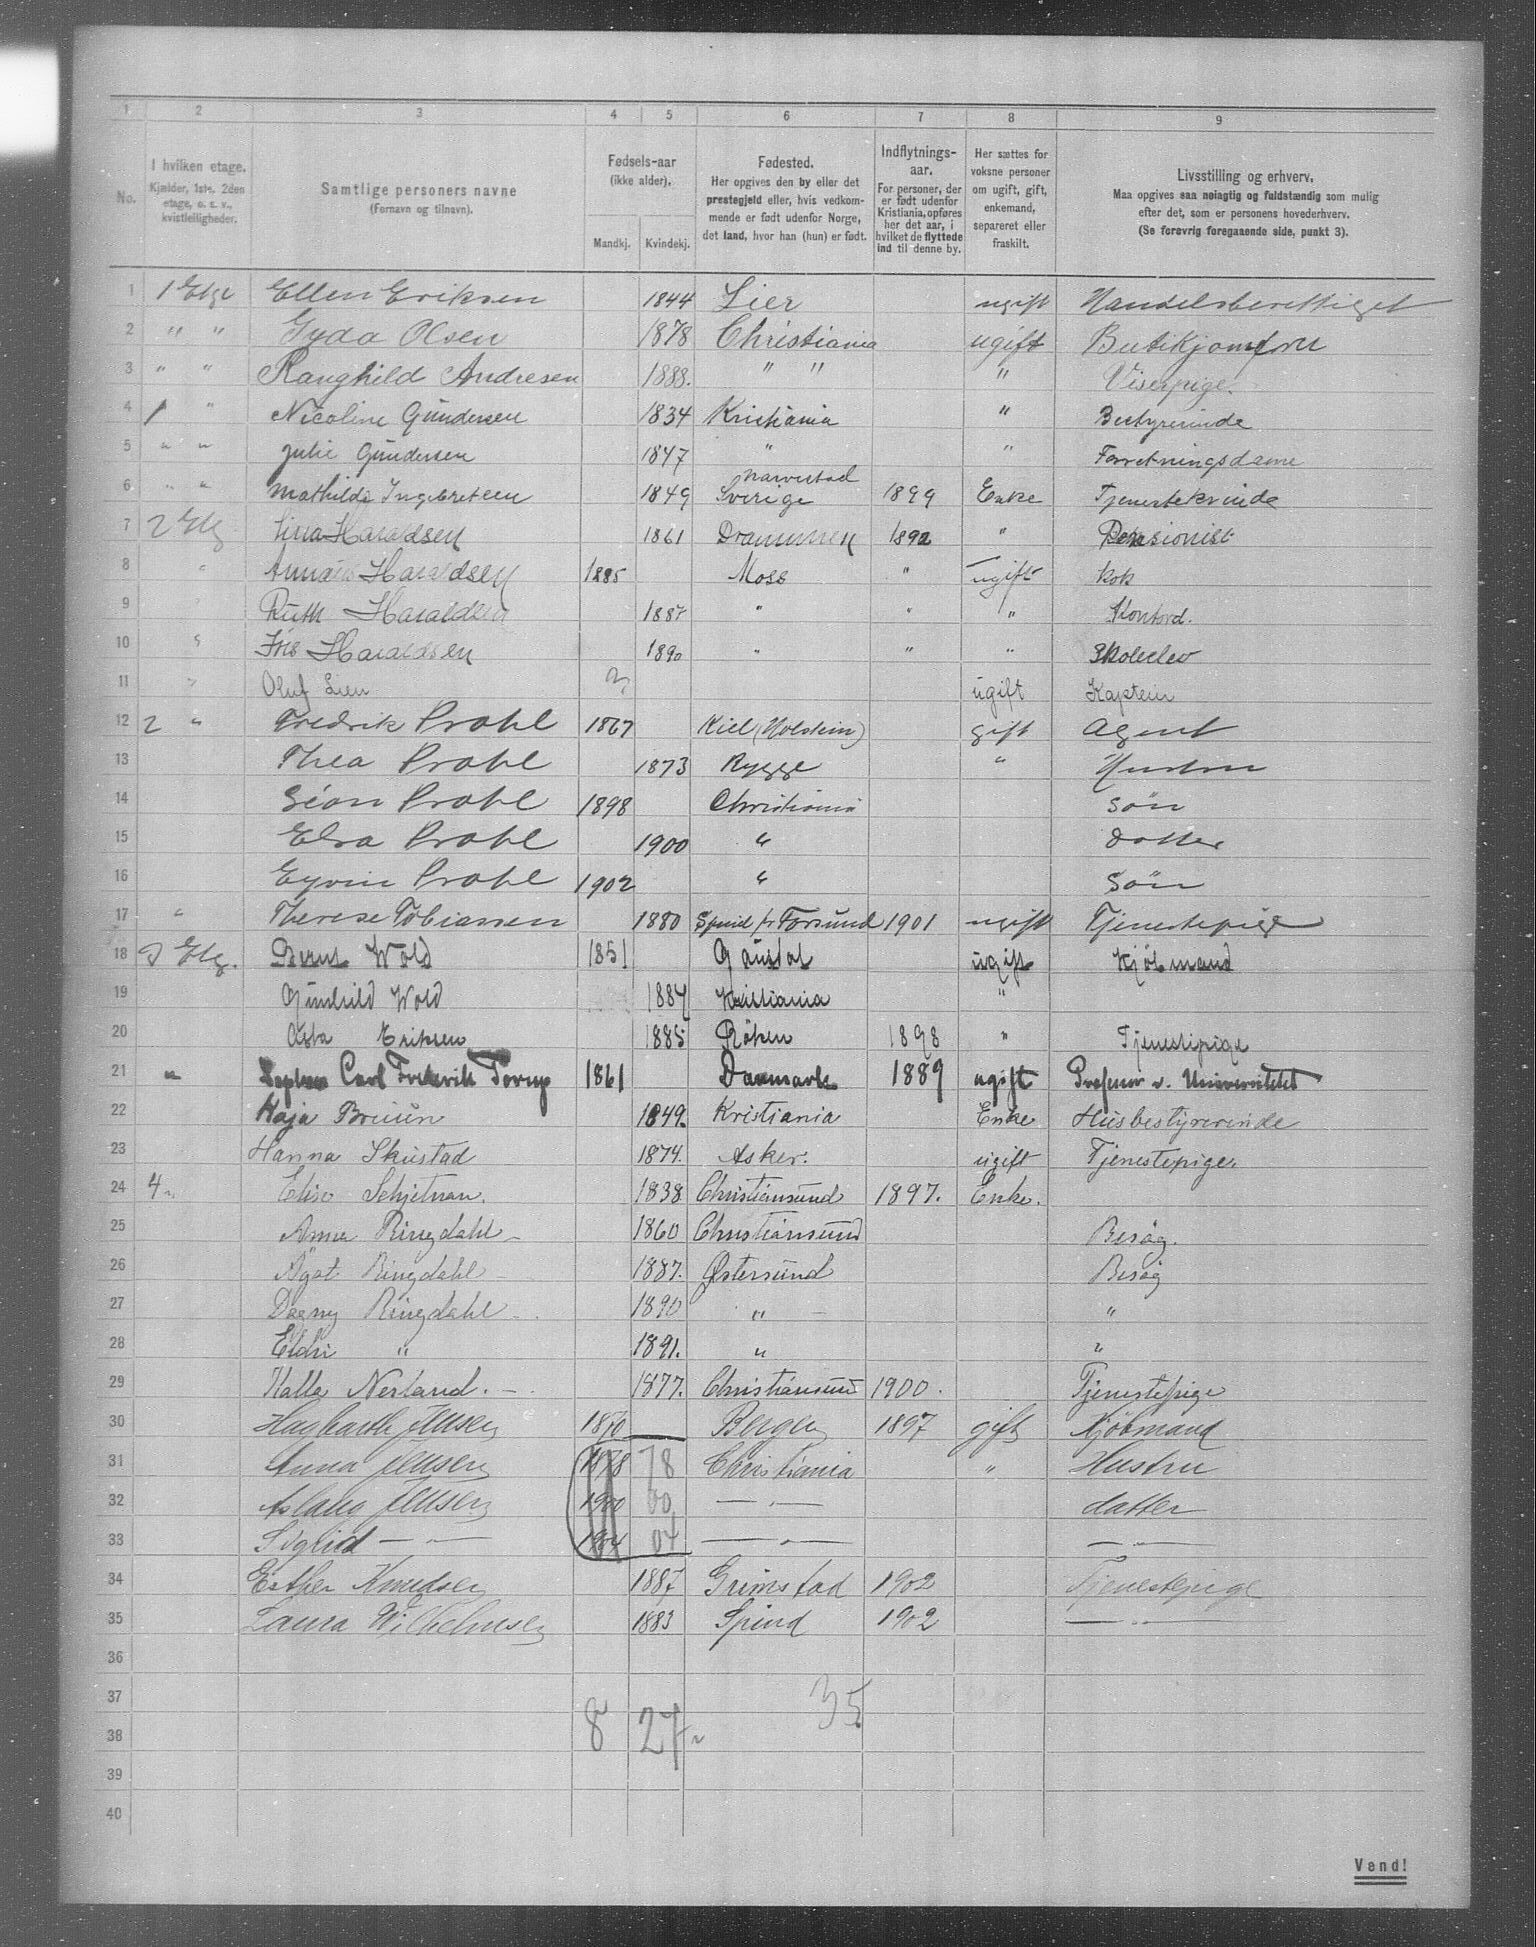 1 2 3 4 5 6 7 8 9
No.
I hvilken etage.
Kjælder, 1ste, 2den
etage, o. s. v.,
kvistleiligheder.
Samtlige personers navne
(Fornavn og tilnavn).
Fødsels-aar
(ikke alder).
Mandkj. Kvindekj.
Fødested.
Her opgives den by eller det
prestegjeld eller, hvis vedkom-
mende er født udenfor Norge,
det land, hvor han (hun) er født.
Indflytnings-
aar.
For personer, der
er født udenfor
Kristiania, opføres
her det aar, i
hvilket de flyttede
ind til denne by.
Her sættes for
voksne personer
om ugift, gift,
enkemand,
separeret eller
fraskilt.
Livsstilling og erhverv.
Maa opgives saa nøiagtig og fuldstændig som mulig
efter det, som er personens hovederhverv.
(Se forøvrig foregaaende side, punkt 3).
1 1 Etge Ellen Eriksen 1844 Lier ugift Handelsberettiget
2 " " Gyda Olsen 1878 Christiania ugift Butikjomfru
3 " " Ranghild Andresen 1888. " " " Viserpige.
4 1 " Nicoline Gundersen 1834 Kristiania " Bestyrerinde
5 " " Julie Gundersen 1847 " " Forretningsdame
6 " " Mathilde Ingebretsen 1849 Sverige 1899 Enke Tjenestekvinde
7 2 Etg Lina Haraldsen 1861 Drammen 1892 " Pensionist
8 " Haraldsen 1885 Moss " ugift kok
9 " Ruth Haraldsen 1887 " " " Kontord.
10 " Iris Haraldsen 1890 " " " Skoleelev
11 " Oluf Lien ugift Kaptein
12 2 " Fredrik Prahl 1867 Kiel (Holstein) gift Agent
13 Thea Prahl 1873 Rygge " Hustru
14 Prahl 1898 Christiania Søn
15 Elsa Prahl 1900 " Datter
16 Eyvin Prahl 1902 " Søn
17 " Therese Tobiassen 1880 Spind pr Farsund 1901 ugift Tjenestepige
18 3 Etg. Bernt Wold 1851 ugift Kjøbmand
19 Gunhild Wold 1884 Kristiania "
20 Asta Eriksen 1885 Røken 1898 " Tjenestepige
21 " Sophus Carl Frederik Torup 1861 Danmark 1889 ugift Professor v. Universitetet
22 Kaja Bruun 1849. Kristiania Enke Husbestyrerinde
23 Hanna Skustad 1874. Asker. ugift Tjenestepige.
24 4 " Elise Schjetnan. 1838 Christiansund 1897. Enke.
25 Anna Ringdahl 1860 Christiansund Besøg.
26 Agot Ringdahl 1887. Østersund Besøg
27 Dagny Ringdahl 1890 " "
28 Eldri " 1891. " "
29 Kalla Nerland. 1877. Christiansund 1900. Tjenestepige
30 Hagbarth Jensen 1870 Bergen 1897 gift Kjøbmand
31 Anna Jensen 1878 78 Christiania " Hustru
32 Aslaug Jensen 1900 00 — " — datter
33 Sigrid — " — 1904 04 — " — — " —
34 Esther Knudsen 1887 Grimstad 1902 Tjenestepige
35 Laura Wilhelmsen 1883 Spind 1902 — " —
36
37 35
38 8 27
39
40
Vend!